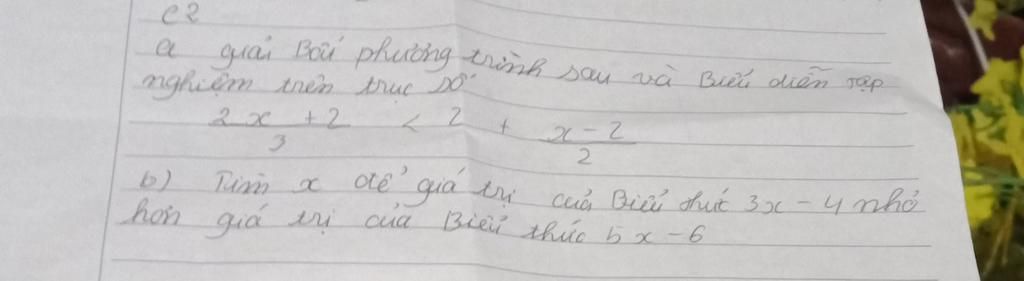 C2
a giải Bất phương trình sau và Biểu diễn tập
nghiệm trên trục số
2x + 2 / 3 < 2 + x - 2 / 2
b) Tìm x để giá trị của Biểu thức 3x - 4 nhỏ
hơn giá trị của Biểu thức 5x - 6